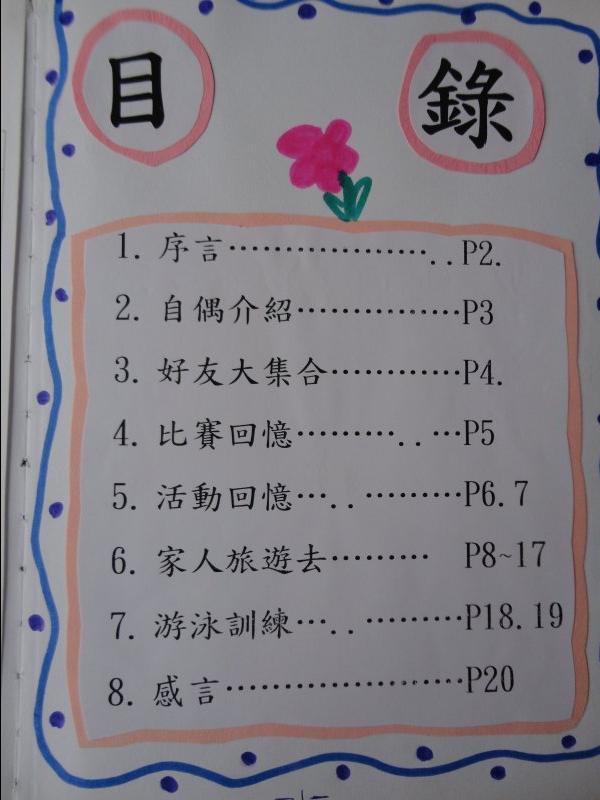 目 錄
1. 序言………………..P2.
2. 自偶介紹……………P3
3. 好友大集合…………P4.
4. 比賽回憶………..…P5
5. 活動回憶…..………P6.7
6. 家人旅遊去……… P8~17
7. 游泳訓練…..………P18.19
8. 感言…………………P20